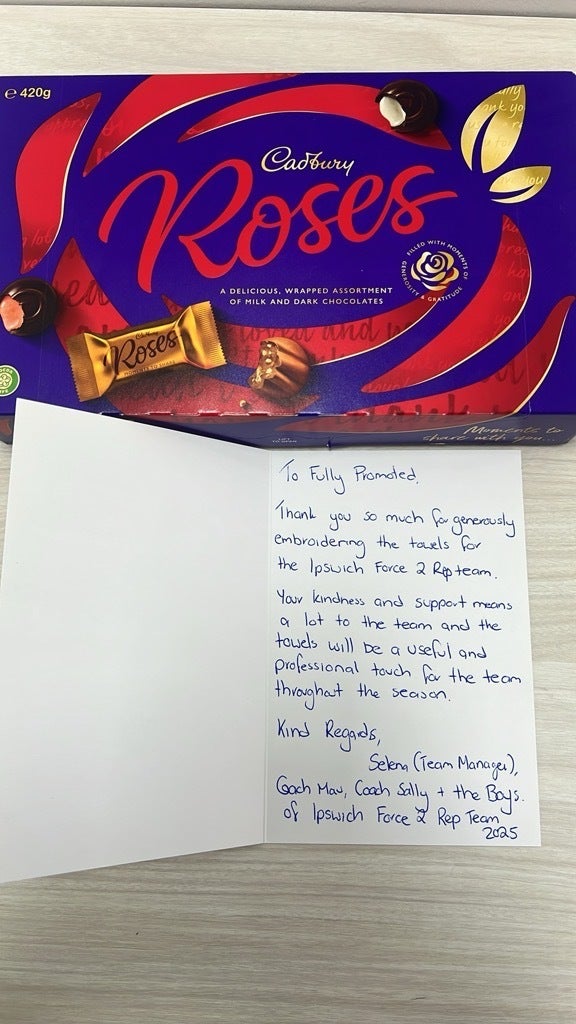 ℮ 420g
Cadbury
Roses
FILLED WITH MOMENTS OF
GENEROSITY & GRATITUDE
A DELICIOUS, WRAPPED ASSORTMENT
OF MILK AND DARK CHOCOLATES
Cadbury
Roses
MOMENTS TO SHARE
Moments to
share with you...
To Fully Promoted,
Thank you so much for generously
embroidering the towels for
the Ipswich Force 2 Rep team.
Your kindness and support means
a lot to the team and the
towels will be a useful and
professional touch for the team
throughout the season.
Kind Regards,
Selena (Team Manager),
Coach Mav, Coach Sally + the Boys.
of Ipswich Force 2 Rep Team
2025